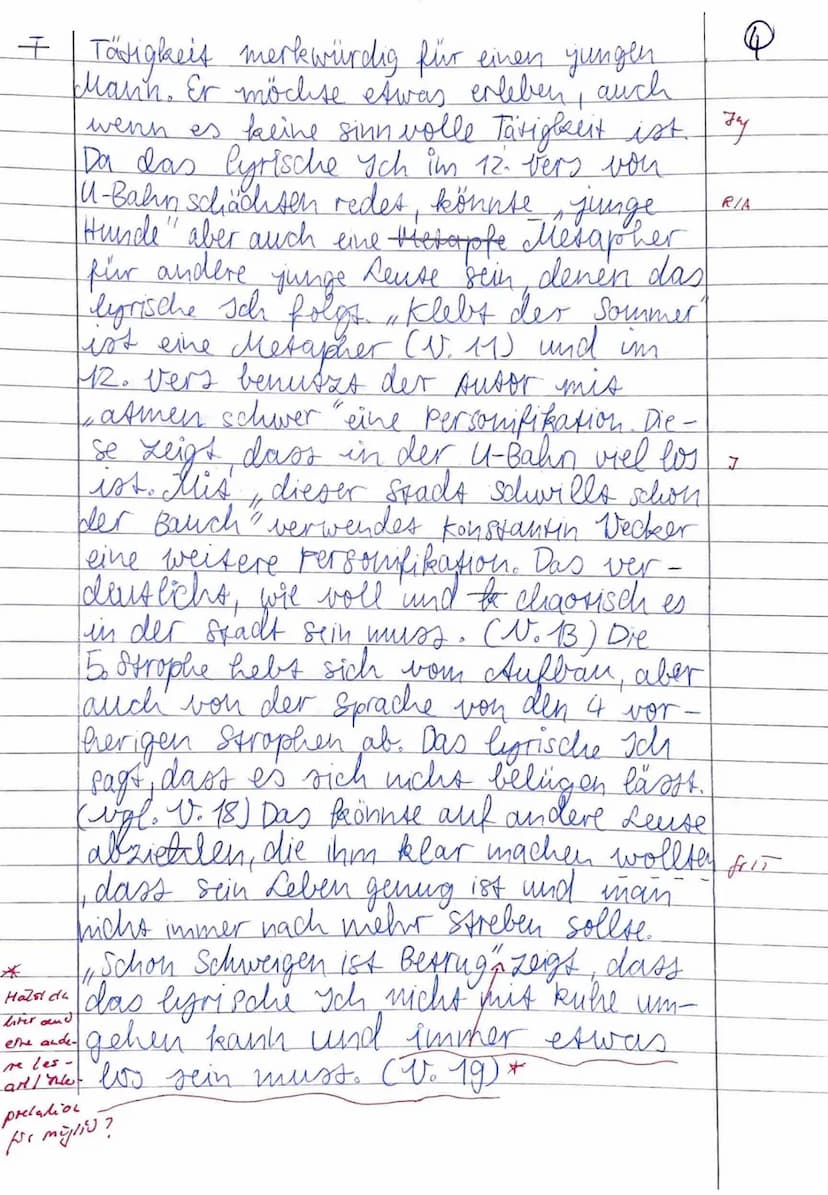 ④
T Tätigkeit merkwürdig für einen jungen
Mann. Er möchte etwas erleben, auch
wenn es keine sinnvolle Tätigkeit ist.
Da das lyrische Ich im 12. Vers von
U-Bahnschächten redet, könnte „junge R/A
Hunde" aber auch eine Metapfe Metapher
für andere junge Leute sein, denen das
lyrische Ich folgt. „Klebt der Sommer"
ist eine Metapher (V. 11) und im
12. Vers benutzt der Autor mit
„atmen schwer" eine Personifikation. Die-
se zeigt, dass in der U-Bahn viel los
ist. Mit „dieser Stadt schwillt schon
der Bauch" verwendet Konstantin Vecker
eine weitere Personifikation. Das ver-
deutlicht, wie voll und chaotisch es
in der Stadt sein muss. (V. 13) Die
5. Strophe hebt sich vom Aufbau, aber
auch von der Sprache von den 4 vor-
herigen Strophen ab. Das lyrische Ich
sagt, dass es sich nicht belügen lässt.
(vgl. V. 18) Das könnte auf andere Leute
abzielen, die ihm klar machen wollten
, dass sein Leben genug ist und man
nicht immer nach mehr streben sollte.
„Schon Schweigen ist Betrug" zeigt, dass
das lyrische Ich nicht mit Ruhe um-
gehen kann und immer etwas
los sein muss. (V. 19) *
*
Hältst du
hier auch
eine ande-
re Les-
art/Inter-
pretation
für möglich?